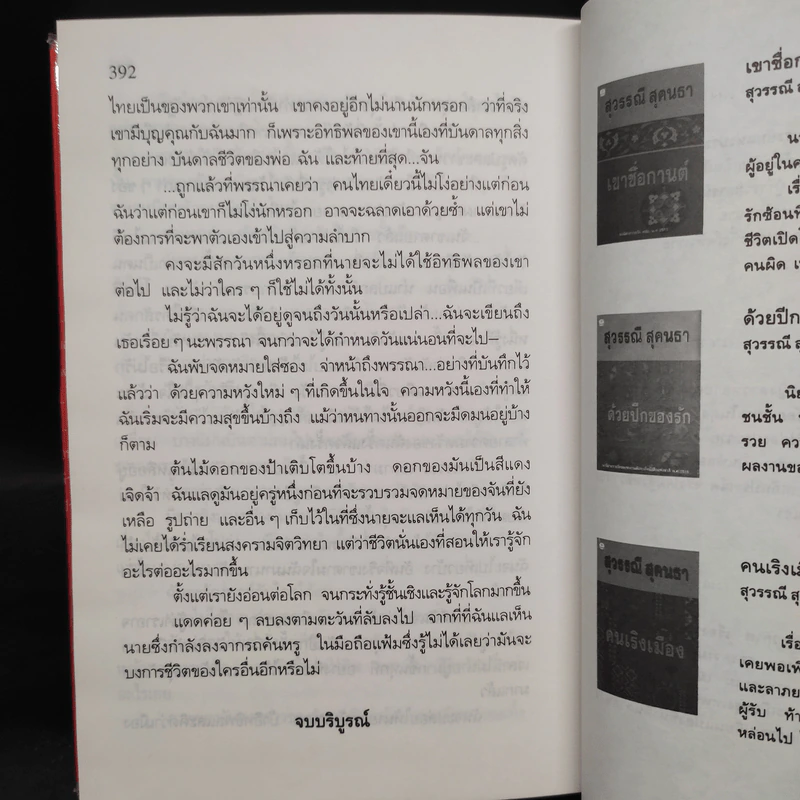 392
ไทยเป็นของพวกเขาเท่านั้น เขาคงอยู่อีกไม่นานนักหรอก ว่าที่จริง
เขามีบุญคุณกับฉันมาก ก็เพราะอิทธิพลของเขานี้เองที่บันดาลทุกสิ่ง
ทุกอย่าง บันดาลชีวิตของพ่อ ฉัน และท้ายที่สุด...จัน
...ถูกแล้วที่พรรณาเคยว่า คนไทยเดี๋ยวนี้ไม่โง่อย่างแต่ก่อน
ฉันว่าแต่ก่อนเขาก็ไม่โง่นักหรอก อาจจะฉลาดเอาด้วยซ้ำ แต่เขาไม่
ต้องการที่จะพาตัวเองเข้าไปสู่ความลำบาก
คงจะมีสักวันหนึ่งหรอกที่นายจะไม่ได้ใช้อิทธิพลของเขา
ต่อไป และไม่ว่าใคร ๆ ก็ใช้ไม่ได้ทั้งนั้น
ไม่รู้ว่าฉันจะได้อยู่ดูจนถึงวันนั้นหรือเปล่า...ฉันจะเขียนถึง
เธอเรื่อย ๆ นะพรรณา จนกว่าจะได้กำหนดวันแน่นอนที่จะไป–
ฉันพับจดหมายใส่ซอง จ่าหน้าถึงพรรณา...อย่างที่บันทึกไว้
แล้วว่า ด้วยความหวังใหม่ ๆ ที่เกิดขึ้นในใจ ความหวังนี้เองที่ทำให้
ฉันเริ่มจะมีความสุขขึ้นบ้างถึง แม้ว่าหนทางนั้นออกจะมืดมนอยู่บ้าง
ก็ตาม
ต้นไม้ดอกของป้าเติบโตขึ้นบ้าง ดอกของมันเป็นสีแดง
เจิดจ้า ฉันแลดูมันอยู่ครู่หนึ่งก่อนที่จะรวบรวมจดหมายของจันที่ยัง
เหลือ รูปถ่าย และอื่น ๆ เก็บไว้ในที่ซึ่งนายจะแลเห็นได้ทุกวัน ฉัน
ไม่เคยได้ร่ำเรียนสงครามจิตวิทยา แต่ว่าชีวิตนั่นเองที่สอนให้เรารู้จัก
อะไรต่ออะไรมากขึ้น
ตั้งแต่เรายังอ่อนต่อโลก จนกระทั่งรู้ชั้นเชิงและรู้จักโลกมากขึ้น
แดดค่อย ๆ ลบลงตามตะวันที่ลับลงไป จากที่ที่ฉันแลเห็น
นายซึ่งกำลังลงจากรถคันหรู ในมือถือแฟ้มซึ่งรู้ไม่ได้เลยว่ามันจะ
บงการชีวิตของใครอื่นอีกหรือไม่
จบบริบูรณ์
สุวรรณี สุคนธา
เขาชื่อกานต์
เขาชื่อก
สุวรรณี
ผู้อยู่ใน
เรื่
รักซ้อน
ชีวิตเปิด
คนผิด
สุวรรณี สุคนธา
ด้วยปีกของรัก
ด้วยปีก
สุวรรณี
นิย
ชนชั้น
รวย
ผลงานของ
สุวรรณี สุคนธา
คนเริงเมือง
คนเริงเมื
สุวรรณี
เรื่อ
เคยพอ
และลาภย
ผู้รับ ท้า
หล่อนไป